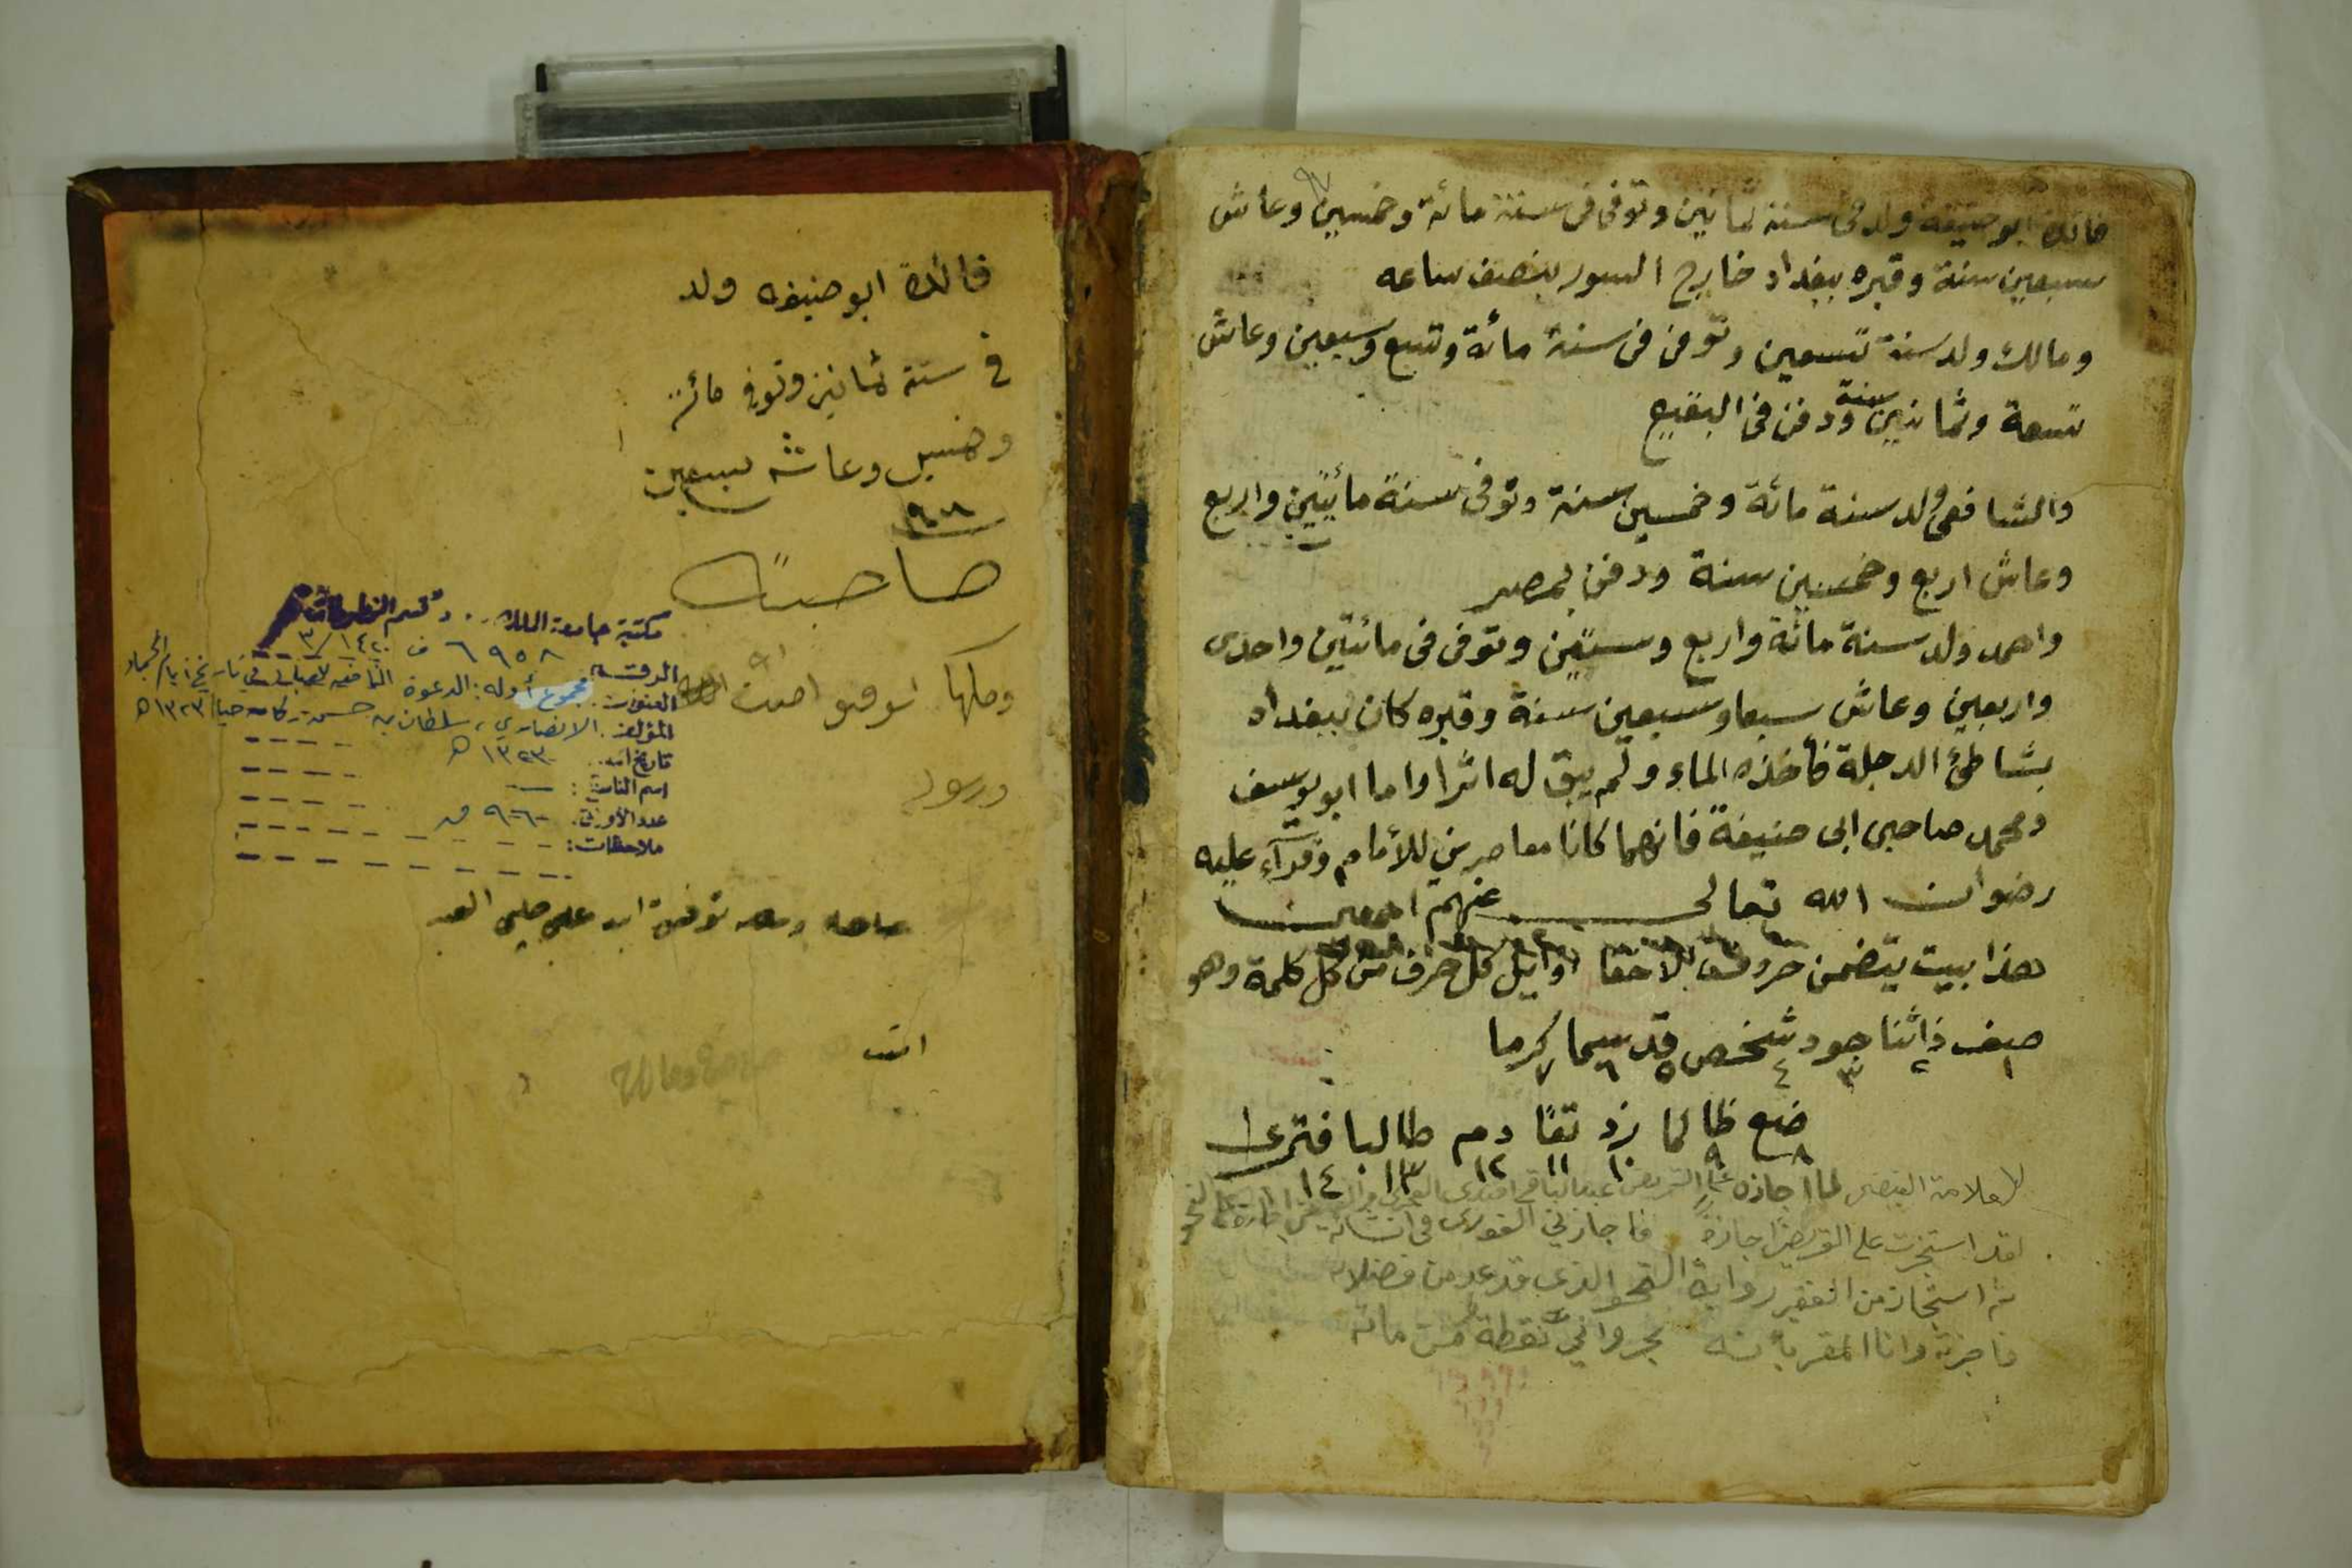 فائدة ابو حنيفة ولد في سنة ثمانين وتوفى فى سنة مائة وخمسين وعاش
سبعين سنة وقبره ببغداد خارج السور بنصف ساعه
ومالك ولد سنة تسعين وتوفى فى سنة مائة وتسع وسبعين وعاش
تسعة وثمانين سنة ودفن فى البقيع
والشافعى ولد سنة مائة وخمسين سنة وتوفى سنة مائتين واربع
وعاش اربع وخمسين سنة ودفن بمصر
واحمد ولد سنة مائة واربع وستين وتوفى فى مائتين واحدى
واربعين وعاش سبعا وسبعين سنة وقبره كان ببغداد
بشاطئ الدجلة فأخذه الماء ولم يبق له اثرا واما ابو يوسف
ومحمد صاحبى ابى حنيفة فانهما كانا معاصرين للأمام وقرآء عليه
رضوان الله تعالى عنهم اجمعين
هذا بيت يتضمن حروف اوايل كل حرف من كل كلمة وهو
صف ذاثنا جود شخص قد سما كرما
١ ٢ ٣ ٤ ٥ ٦ ٧
ضع ظالما زد تقا دم طالبا فترى
٨ ٩ ١٠ ١١ ١٢ ١٣ ١٤
للعلامة لما اجازه الشريف عبد الباقي افندي العمري
لقد استجزت على القريض اجازة فاجازني الفوري في انشائه
ثم استجاز من الفقير رواية النحو الذي قد عد من فضلائه
فاجزته وانا المقر بأنه نقطة من مائه
فائدة ابو حنيفه ولد
في سنة ثمانين وتوفي مائة
وخمسين وعاش سبعين
صاحب
ومالكها
مكتبة جامعة الملك قسم المخطوطات
الرقم: ٦٩٥٨ ف ١٤٢٠/٣
العنوان: مجموع أوله: الدعوة في تاريخ ايام
المؤلف: الانصاري، سلطان بن حسن كان حيا ١٣٢٣هـ
١٣٢٣هـ
اسم الناسخ:
عدد الأوراق:
ملاحظات:
انت